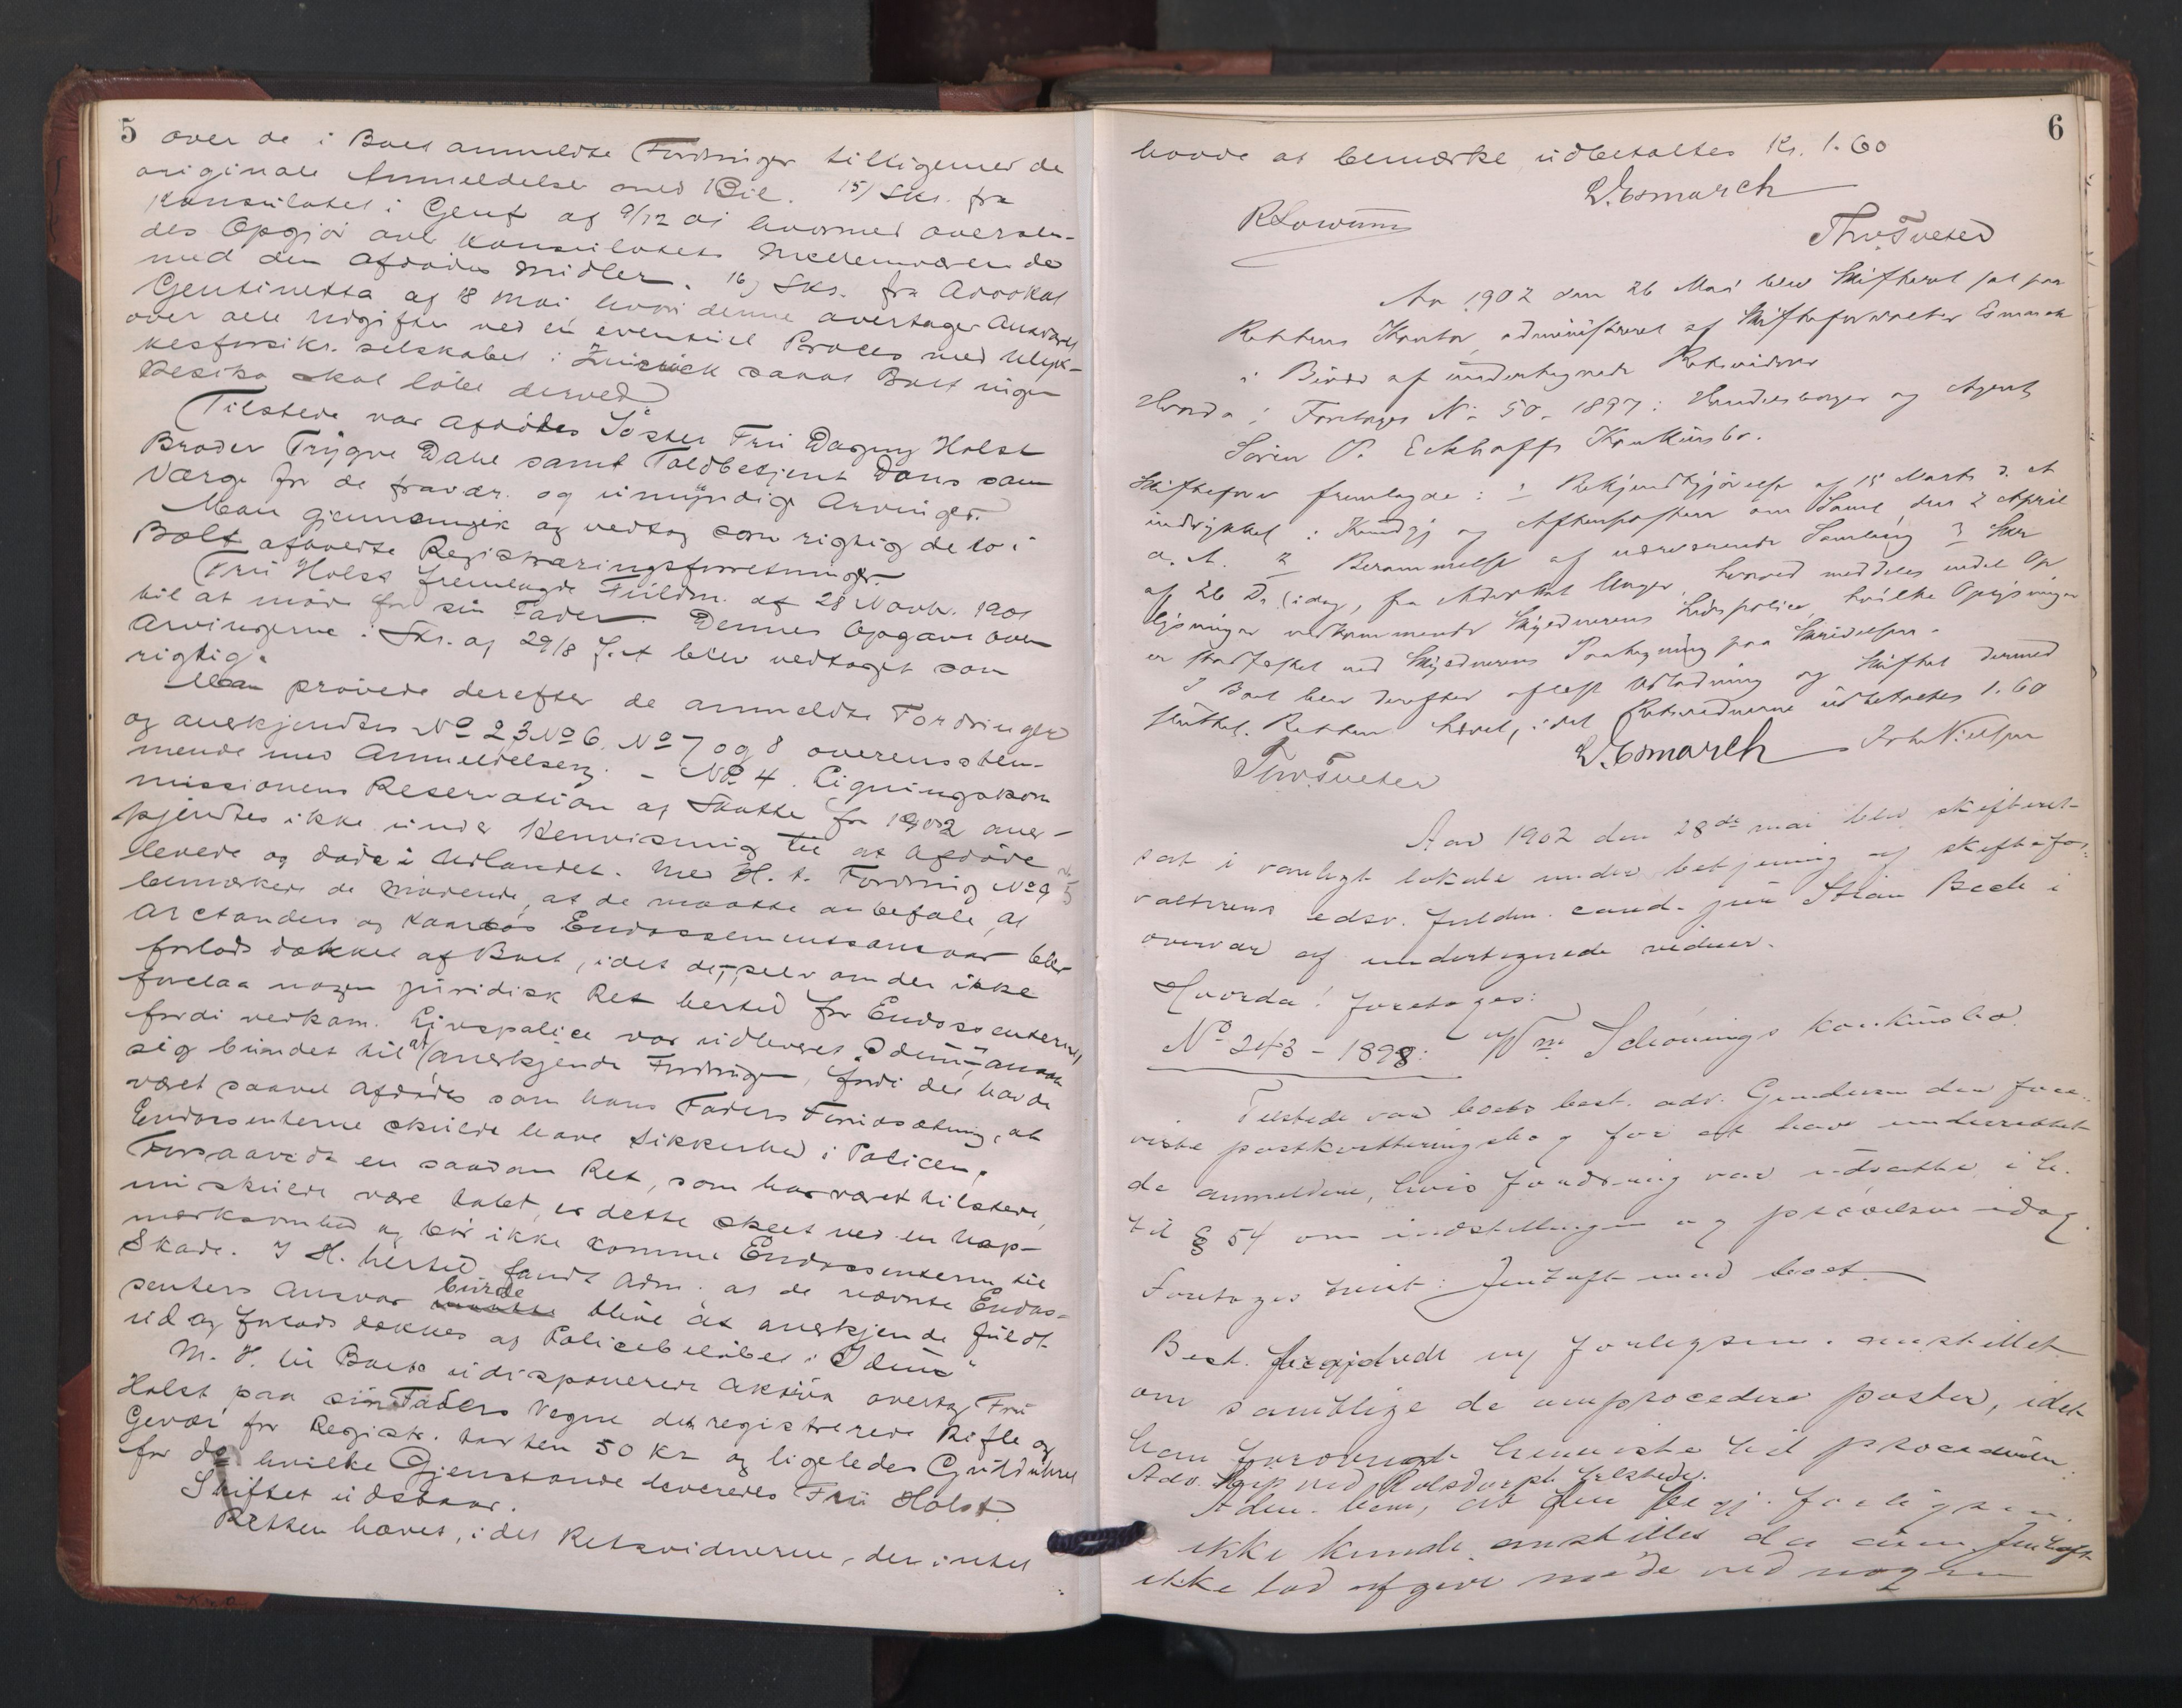 5
over de i Boet anmeldte Fordringer tilligemed de
originale Anmeldelser med Bil. 15) Skr. fra
Konsulatet i Genf af 9/12 01 hvormed oversen-
des Opgjør over Konsulatets Mellemværende
med den Afdødes Midler. 16) Skr. fra Advokat
Gentinetta af 18 Mai, hvori denne overtager Ansvaret
over alle Udgifter ved en eventuel Proces med Ulyk-
kesforsikr. selskabet i Zürich saaat Boet ingen
Resiko skal løbe derved
Tilstede var Afdødes Søster Fru Dagny Holst
Broder Trygve Dahl samt Toldbetjent Dons som
Værge for de fravær. og umyndige Arvinger.
Man gjennemgik og vedtog som rigtig de to i
Boet afholdte Registreringsforretninger.
Fru Holst fremlagde Fuldm. af 28 Novbr. 1901
til at møde for sin Fader. Dennes Opgave over
Arvingerne i Skr. af 29/8 f. A blev vedtaget som
rigtig.
Man prøvede derefter de anmeldte Fordringer
og anerkjendtes No 2 3 No 6, No 7 og 8 overensstem-
mende med Anmeldelsen. - No 4. Ligningskom
missionens Reservation af Skatte for 1902 aner-
kjendtes ikke under Henvisning til at Afdøde
levede og døde i Udlandet. Med H. t. Fordring No 9
bemærkede de mødende, at de maatte anbefale, at
Arctanders og Kaarbøs Endossementsansvar blev
forlods dækket af Boet, idet de, selv om der ikke
forelaa nogen juridisk Ret hertil for Endossenterne,
fordi vedkom. Livspolice var udleveret "Idun", ansaa
sig bundet til at anerkjende Fordringen, fordi det havde
været saavel Afdødes som hans Faders Forudsætning, at
Endossenterne skulde have Sikkerhed i Policen;
Forsaavidt en saadan Ret, som har været tilstede,
nu skulde være tabt, er dette skeet ved en Uop-
mærksomhed og bør ikke komme Endossenterne til
Skade. I H. hertil fandt Adm. at de nævnte Endos-
burde
senters Ansvar maatte blive at anerkjende fuldt
ud og forlods dækkes af Policebeløbet i "Idun"
M. H. til Boets udisponerede Aktiva overtog Fru
Holst paa sin Faders Vegne den registrerede Rifle og
Gevær for Registr. taxten 50 Kr og ligeledes Gulduhret
for do hvilke Gjenstande leveredes Fru Holst.
Skiftet udstaar.
Retten hævet, idet Retsvidnerne, der intet
6
havde at bemærke udbetaltes Kr. 1.60
L. Esmarch
Thv. Tveter
Aar 1902 den 26 Mai blev Skifteret sat paa
Rettens Kontor administreret af Skifteforvalter Esmarch
i Bivær af undertegnede Retsvidner
Hvorda: Foretages No 50 - 1897: Handelsborger og Agent
Søren P. Eckhoffs Konkursbo.
Skifteforv fremlagde: 1 Bekjendtgjørelse af 15 Marts d. A
indrykket i Kundgj og Aftenposten om Saml den 2 April
d. A. 2 Berammelse af nærværende Samling 3 Skr
af 26 Ds (idag, fra Advokat Unger, hvorved meddeles endel Op
lysninger vedkommende Skyldnerens Livspolice hvilke Oplysninger
er stadfæstet ved Skyldnerens Paategning paa Skrivelsen.
I Boet blev derefter aflest Udlodning og Skiftet dermed
sluttet. Retten hævet, idet Retsvidnerne udbetaltes 1.60
L. Esmarch
Joh Nielsen
Thv. Tveter
Aar 1902 den 28de mai blev skifteret
sat i vanligt lokale under betjening af skiftefor-
valterens edsv. fuldm. cand. jur Stian Bech i
overvær af undertegnede vidner.
Hvorda! foretages:
No 243 - 1898: Wm. Schønings konkursbo.
Tilstede var boets best. adv. Gundersen der fore-
viste postkvitteringsbog for at have underrettet
de anmeldere, hvis fordring var udsatte i h.
til § 54 om indstillingen og prøvelsen idag.
Foretages tvist: Jentoft mod boet.
Best. begjærede ny forligsm. anstillet
om samtlige de omprocedere poster, idet
han forøvrigt henviste til proceduren.
Adv. ved Rolsdorph tilstede.
Adm. bem, at den begj. forligsm.
ikke kunde anstilles da Jentoft
ikke lod afgive møde ved nogen